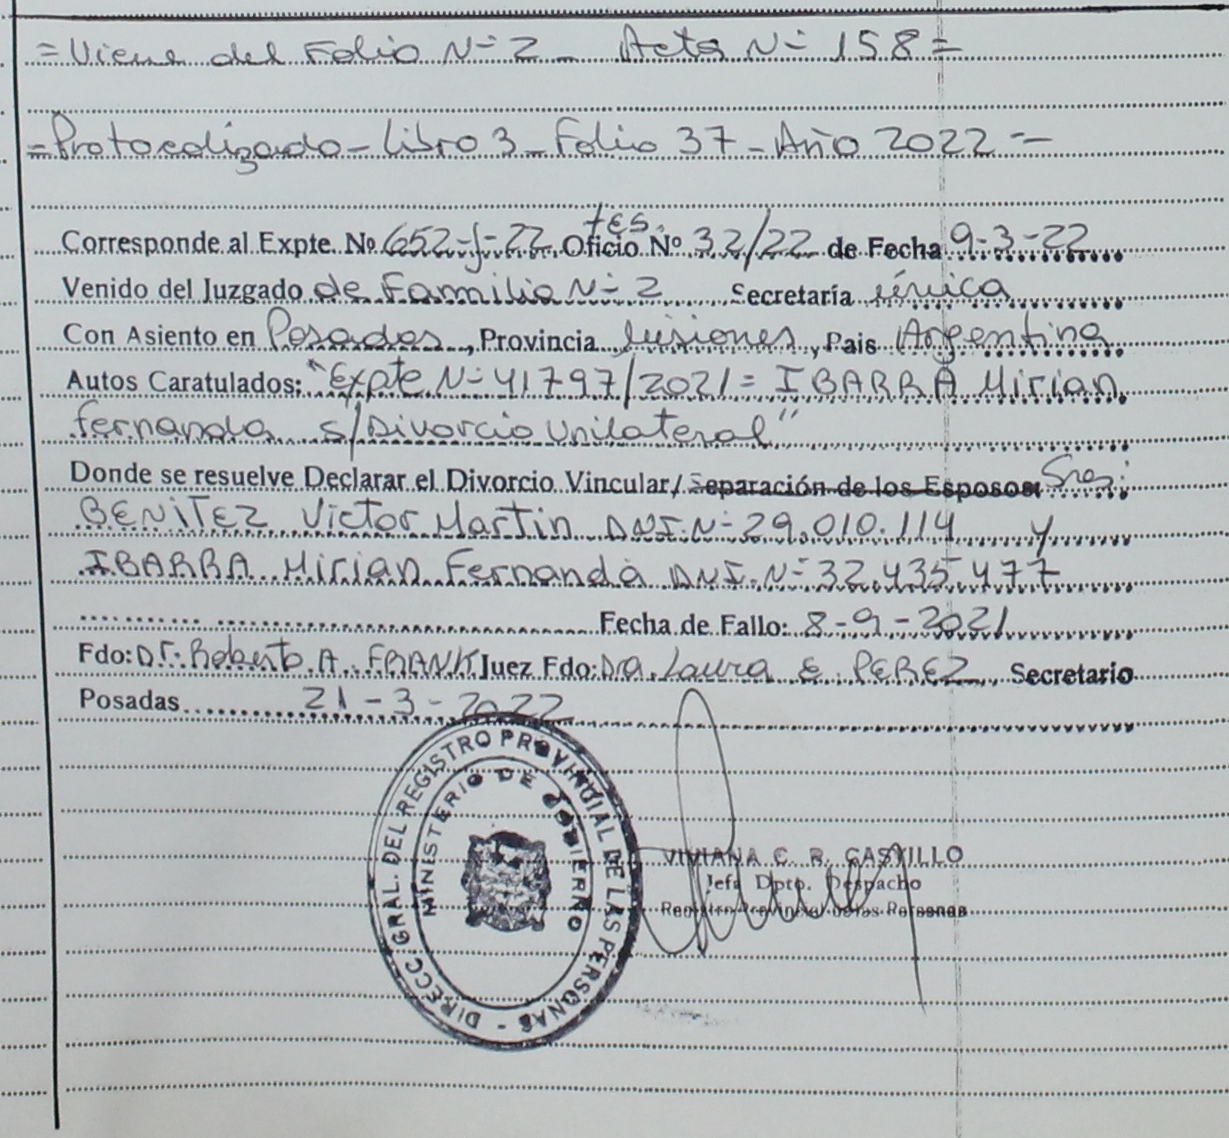 = Viene del Folio Nº 2 _ Acta Nº 158 =
= Protocolizado - Libro 3 - Folio 37 - Año 2022 -
tes.
Corresponde al Expte. Nº 652-J-22 Oficio Nº 32/22 de Fecha 9-3-22
Venido del Juzgado de Familia Nº 2 Secretaría única
Con Asiento en Posadas, Provincia Misiones, Pais Argentina
Autos Caratulados: "Expte Nº 41797/2021 = IBARRA Mirian
fernanda s/Divorcio Unilateral"
Donde se resuelve Declarar el Divorcio Vincular/ Separación de los Esposos Sres:
BENITEZ Victor Martin DNI. Nº 29.010.114 y
IBARRA Mirian Fernanda DNI. Nº 32.435.477
Fecha de Fallo: 8-9-2021
Fdo: Dr. Roberto A. FRANK Juez Fdo: Dra. Laura E. PEREZ, Secretario
Posadas 21-3-2022
DIRECC. GRAL. DEL REGISTRO PROVINCIAL DE LAS PERSONAS -
MINISTERIO DE GOBIERNO
VIVIANA C. R. CASTILLO
Jefa Dpto. Despacho
Registro Provincial de las Personas